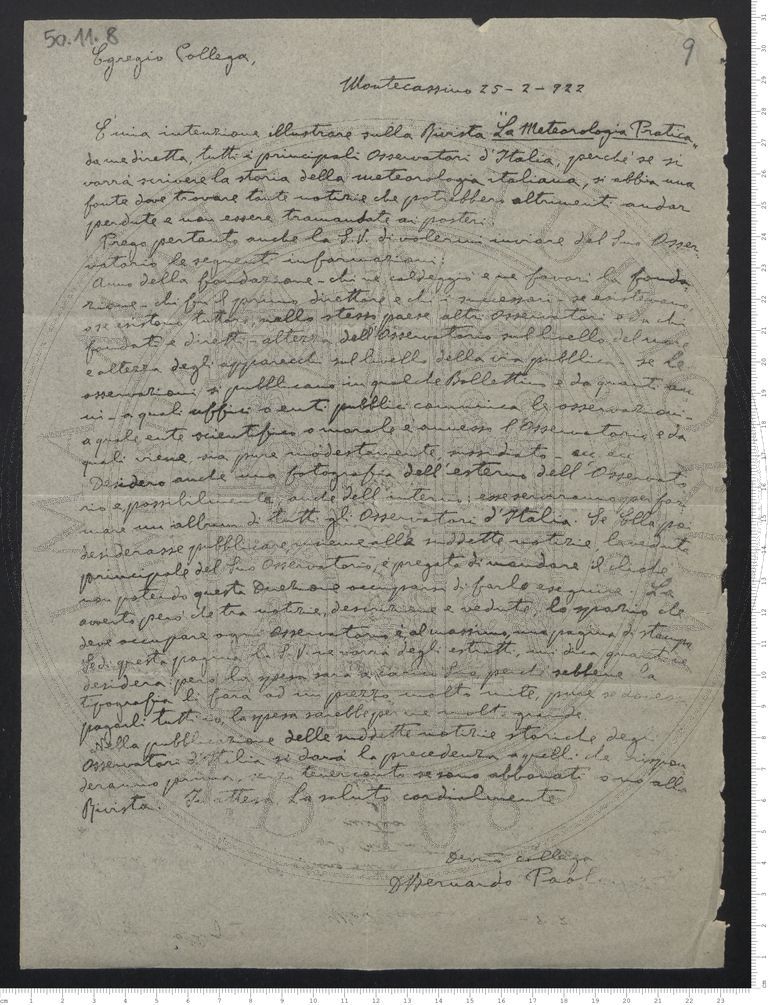 50.11.8
9
Egregio Collega,
Montecassino 25-2-922
È mia intenzione illustrare sulla Rivista "La Meteorologia Pratica"
da me diretta, tutti i principali Osservatori d'Italia, perché se si
vorrà scrivere la storia della meteorologia italiana, si abbia una
fonte dove trovare tante notizie che potrebbero altrimenti andar
perdute e non essere tramandate ai posteri.
Prego pertanto anche la S.V. di volermi inviare del Suo Osser-
vatorio le seguenti informazioni:
Anno della fondazione - chi ne caldeggiò e ne favorì la fonda-
zione - chi fu il primo direttore e chi i successori - se esistevano,
o se esistono tuttora, nello stesso paese altri Osservatori e da chi
fondati e diretti - altezza dell'Osservatorio sul livello del mare
e altezza degli apparecchi sul livello della via pubblica - se le
osservazioni si pubblicano in qualche Bollettino e da quanti an-
ni - a quali uffici o enti pubblici comunica le osservazioni -
a quale ente scientifico o morale è annesso l'Osservatorio e da
quali viene, sia pure modestamente, sussidiato - ecc. ecc.
Desidero anche una fotografia dell'esterno dell'Osservato-
rio e, possibilmente, anche dell'interno; esse serviranno per for-
mare un album di tutti gli Osservatori d'Italia. Se Ella poi
desiderasse pubblicare, insieme alle suddette notizie, la veduta
principale del Suo Osservatorio, è pregata di mandare il cliché,
non potendo questa Direzione occuparsi di farlo eseguire. La
avverto però che tra notizie, descrizione e vedute, lo spazio che
deve occupare ogni Osservatorio è al massimo, una pagina di stampa.
Se di questa pagina la S.V. ne vorrà degli estratti, mi dica quanti ne
desidera; però la spesa sarà a carico Suo, perché sebbene la
tipografia li farà ad un prezzo molto mite, pure se dovessi
pagarli tutti io, la spesa sarebbe per me molto grande.
Nella pubblicazione delle suddette notizie storiche degli
Osservatori d'Italia si darà la precedenza a quelli che rispon-
deranno prima, senza tener conto se sono abbonati o no alla
Rivista. In attesa La saluto cordialmente
Dev.mo collega
D. Bernardo Paoloni